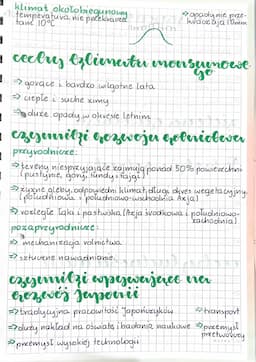 klimat okołobiegunowy
temperatura nie przekracza
tam 10°C
→ opady nie prze-
kraczają
cechy klimatu monsunowe-
go
→ gorące i bardzo wilgotne lata
→ ciepłe i suche zimy
→ duże opady w okresie letnim
czynniki rozwoju rolnictwa
przyrodnicze:
→ tereny niesprzyjające zajmują ponad 50% powierzchni
(pustynie, góry, tundry, tajgi)
→ żyzne gleby, odpowiedni klimat, długi okres wegetacyjny
(południowa i południowo-wschodnia Azja)
→ rozległe łąki i pastwiska (Azja środkowa i południowo-
zachodnia)
pozaprzyrodnicze:
→ mechanizacja rolnictwa
→ sztuczne nawadnianie
czynniki wpływające na
rozwój Japonii
→ tradycyjna pracowitość Japończyków
→ transport
→ duży nakład na oświatę i badania naukowe
→ przemysł
przetwórczy
→ przemysł wysokiej technologii